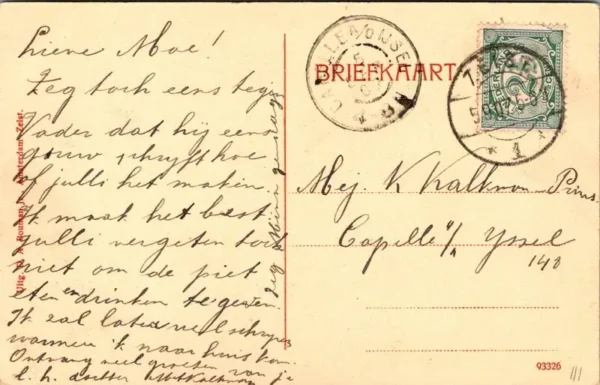 Lieve Moe!
Zeg toch eens tegen
Vader dat hij eens
gouw schryft hoe
of julli het maken.
Ik maak het best
julli vergeten toch
niet om de piet
eten en drinken te geven.
Ik zal later veel schrijven
wanneer ik naar huis kom.
Ontvang veel groeten van je
l. h. dochter
BRIEFKAART
CAPELLE A/D IJSEL
ZEIST
NEDERLAND
2½
1
Mej. K Kalkman Prins
Capelle a/d Yssel
148
93326
Amsterdam-Zeist.